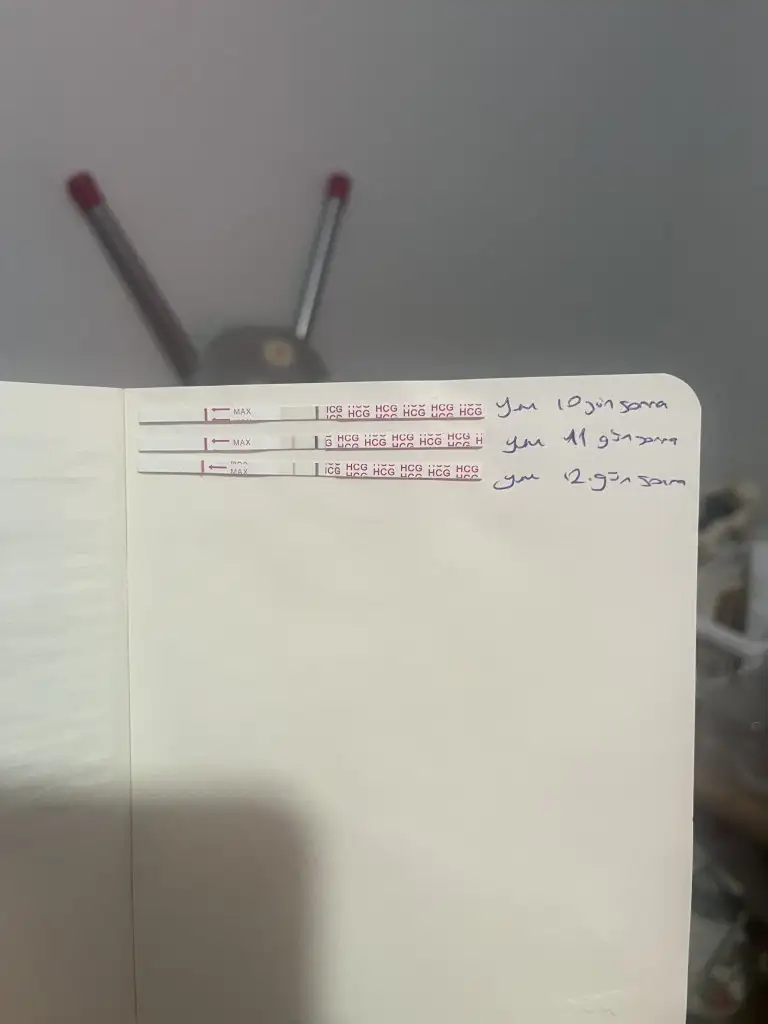 MAX HCG HCG HCG HCG HCG HCG yum 10 gün sonra
MAX HCG HCG HCG HCG HCG HCG yum 11 gün sonra
MAX HCG HCG HCG HCG HCG HCG yum 12.gün sonra